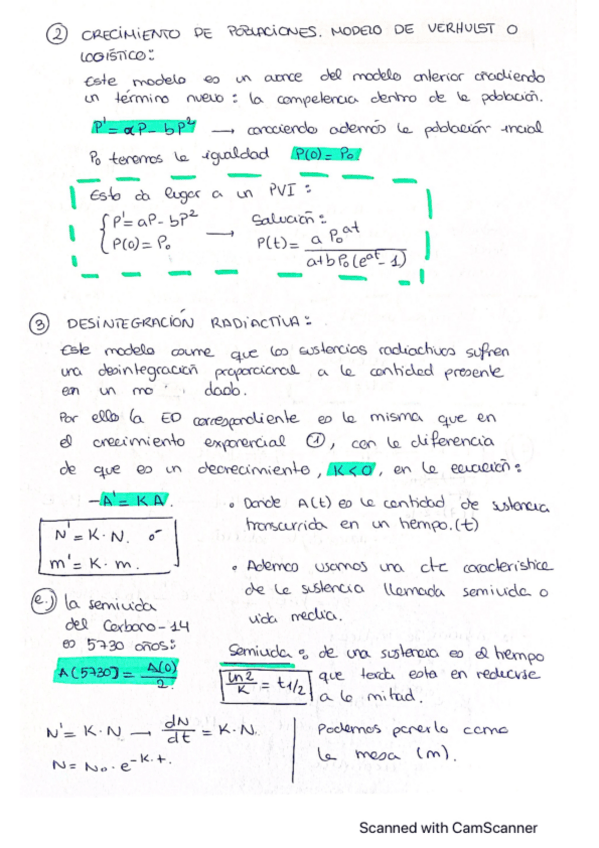 ② CRECIMIENTO DE POBLACIONES. MODELO DE VERHULST O
LOGÍSTICO:
Este modelo es un avance del modelo anterior añadiendo
un término nuevo: la competencia dentro de la población.
P' = aP - bP² → conociendo además la población inicial
P₀ tenemos la igualdad P(0) = P₀
Esto da lugar a un PVI:
P' = aP - bP² → Solución:
P(0) = P₀ P(t) = a P₀^at / a + b P₀ (e^at - 1)
③ DESINTEGRACIÓN RADIACTIVA:
Este modelo asume que las sustancias radiactivas sufren
una desintegración proporcional a la cantidad presente
en un mo dado.
Por ello la ED correspondiente es la misma que en
el crecimiento exponencial ①, con la diferencia
de que es un decrecimiento, K<0, en la ecuación:
-A' = KA.
N' = K·N. ó
m' = K·m.
• Donde A(t) es la cantidad de sustancia
transcurrida en un tiempo.(t)
• Ademas usamos una cte caracteristica
de la sustencia llamada semivida o
vida media.
e.) la semivida
del Carbono-14
es 5730 años:
A(5730) = A(0)/2.
Semivida: de una sustencia es el tiempo
ln2/K = t1/2 que tarda esta en reducirse
a la mitad.
N' = K·N → dN/dt = K·N.
N = N₀·e^-K·t.
Podemos ponerlo como
la masa (m).
Scanned with CamScanner